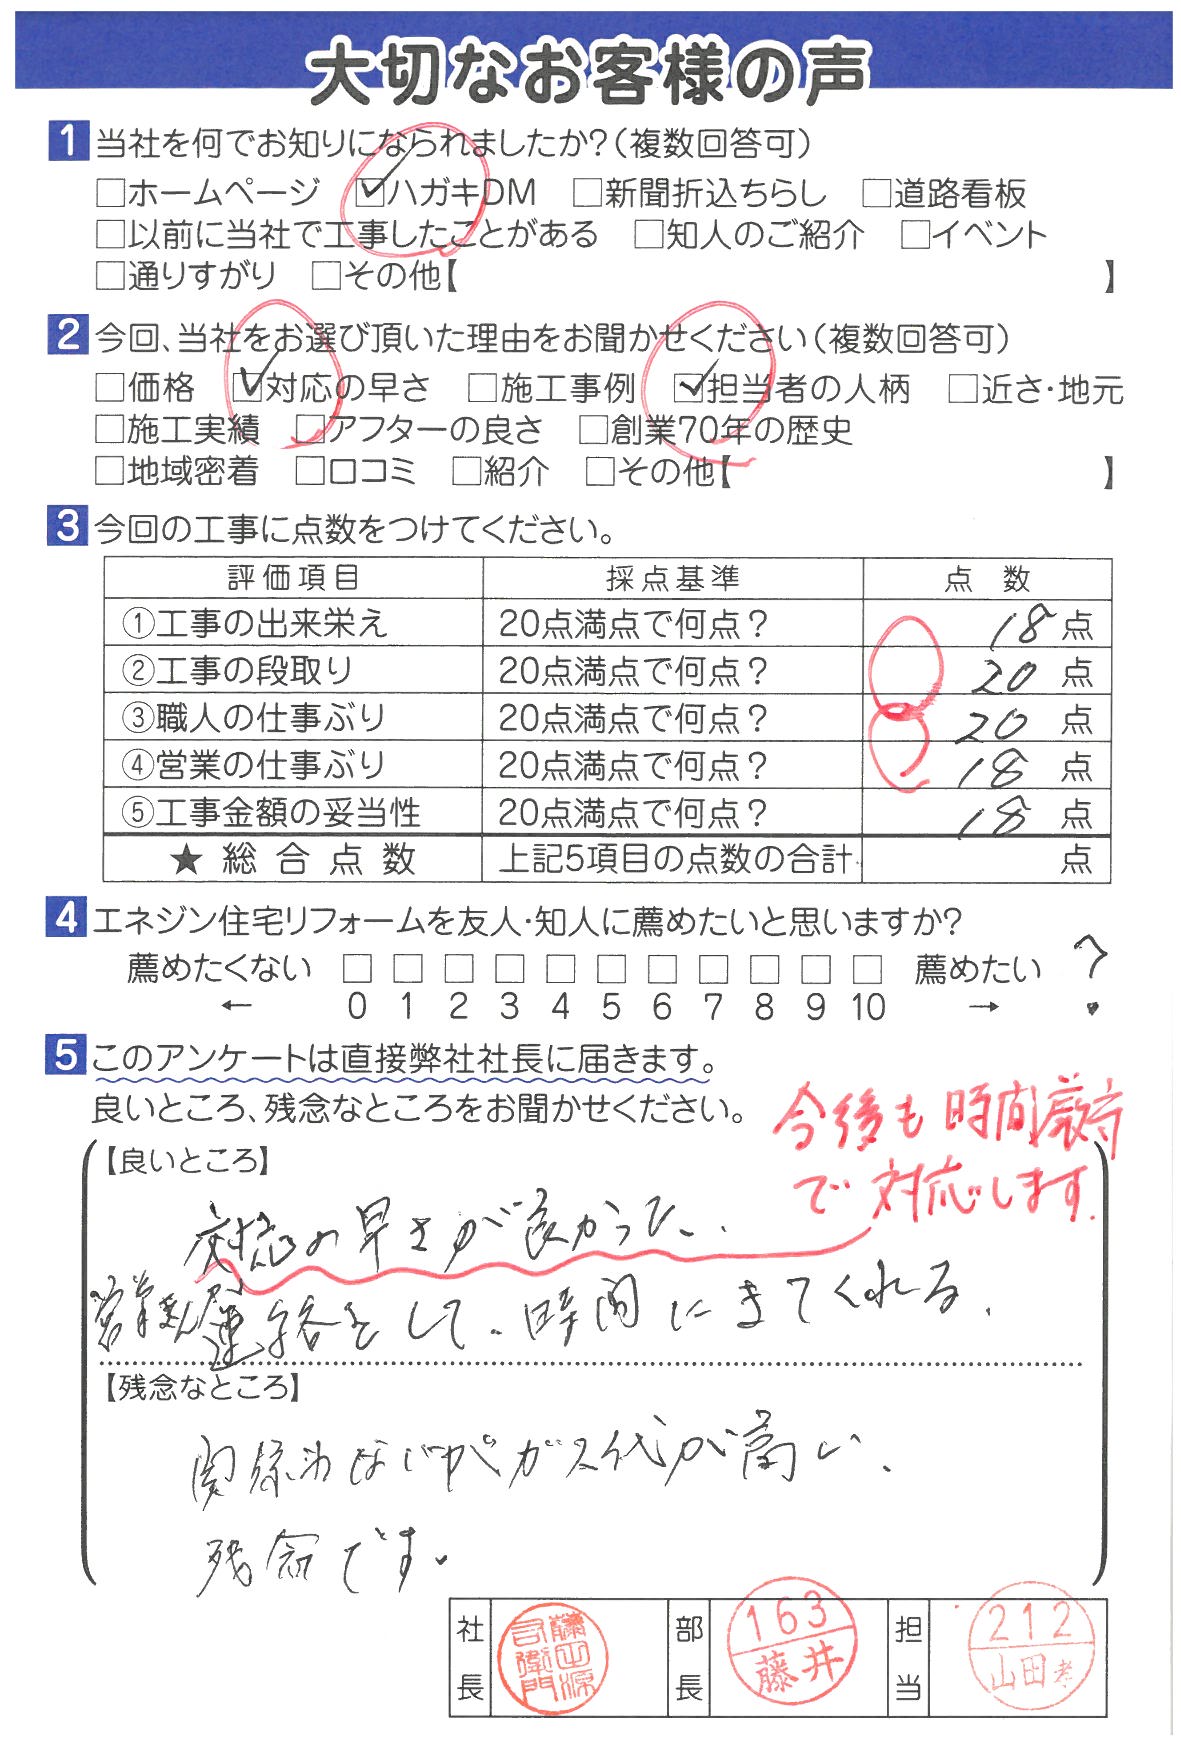 大切なお客様の声
1 当社を何でお知りになられましたか?(複数回答可)
□ホームページ ☑ハガキDM □新聞折込ちらし □道路看板
□以前に当社で工事したことがある □知人のご紹介 □イベント
□通りすがり □その他【 】
2 今回、当社をお選び頂いた理由をお聞かせください(複数回答可)
□価格 ☑対応の早さ □施工事例 ☑担当者の人柄 □近さ・地元
□施工実績 □アフターの良さ □創業70年の歴史
□地域密着 □口コミ □紹介 □その他【 】
3 今回の工事に点数をつけてください。
評価項目 採点基準 点数
①工事の出来栄え 20点満点で何点? 18点
②工事の段取り 20点満点で何点? 20点
③職人の仕事ぶり 20点満点で何点? 20点
④営業の仕事ぶり 20点満点で何点? 18点
⑤工事金額の妥当性 20点満点で何点? 18点
★総合点数 上記5項目の点数の合計 点
4 エネジン住宅リフォームを友人・知人に薦めたいと思いますか?
薦めたくない □ □ □ □ □ □ □ □ □ □ □ 薦めたい ?
← 0 1 2 3 4 5 6 7 8 9 10 →
5 このアンケートは直接弊社社長に届きます。
良いところ、残念なところをお聞かせください。
今後も時間厳守
で対応します.
【良いところ】
対応の早さが良かった.
営業さん 連絡をして、時間にきてくれる.
【残念なところ】
関係ないがガス代が高い.
残念です.
社長 部長 163 藤井 担当 212 山田孝